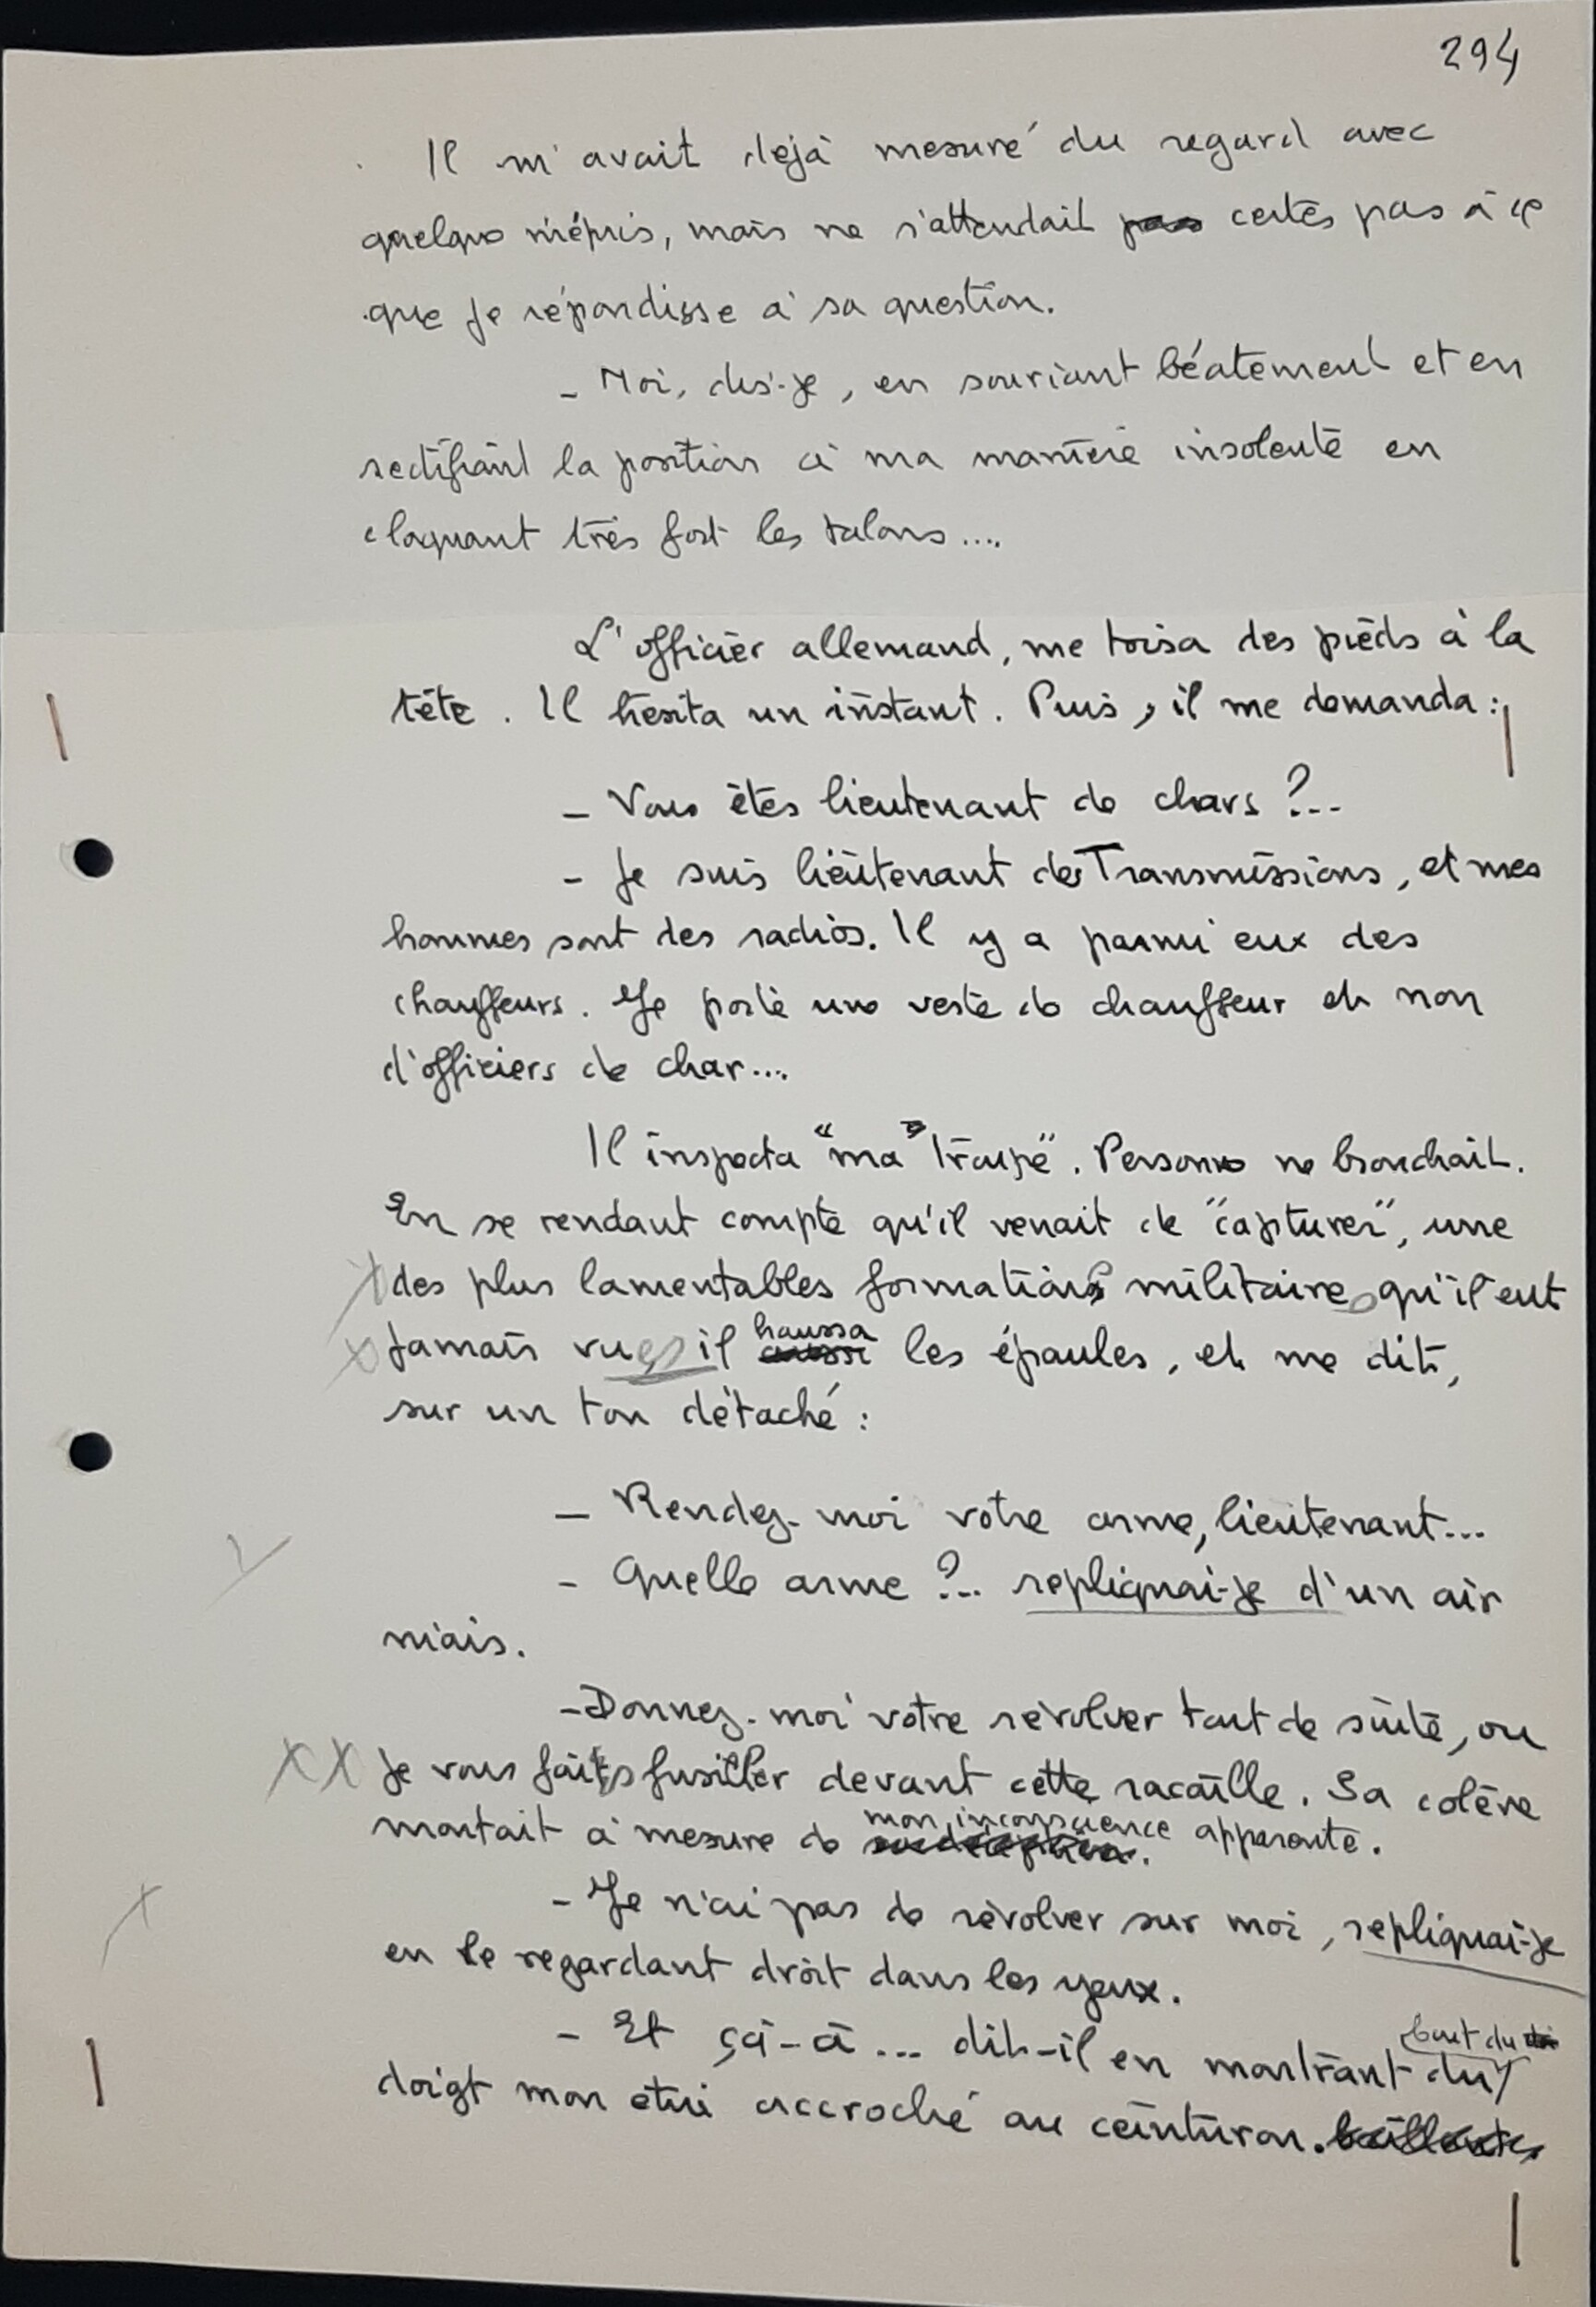 294
Il m'avait déjà mesuré du regard avec
quelque mépris, mais ne s'attendait pas certes pas à ce
que je répondisse à sa question.
- Moi, dis-je, en souriant béatement et en
rectifiant la position à ma manière insolente en
claquant très fort les talons....
L'officier allemand, me toisa des pieds à la
tête. Il hésita un instant. Puis, il me demanda :
- Vous êtes lieutenant de chars ?...
- Je suis lieutenant des Transmissions, et mes
hommes sont des radios. Il y a parmi eux des
chauffeurs. Je porte une veste de chauffeur et non
d'officiers de char...
Il inspecta "ma" troupe". Personne ne bronchait.
En se rendant compte qu'il venait de "capturer", une
des plus lamentables formations militaires qu'il eut
jamais vues il haussa les épaules, et me dit,
sur un ton détaché :
- Rendez-moi votre arme, lieutenant...
- Quelle arme ?... repliquai-je d'un air
niais.
- Donnez-moi votre révolver tout de suite, ou
je vous fais fusiller devant cette racaille. Sa colère
montait à mesure de mon inconscience apparente.
- Je n'ai pas de révolver sur moi, repliquai-je
en le regardant droit dans les yeux.
- Et çà-à... dit-il en montrant du bout du
doigt mon étui accroché au ceinturon.